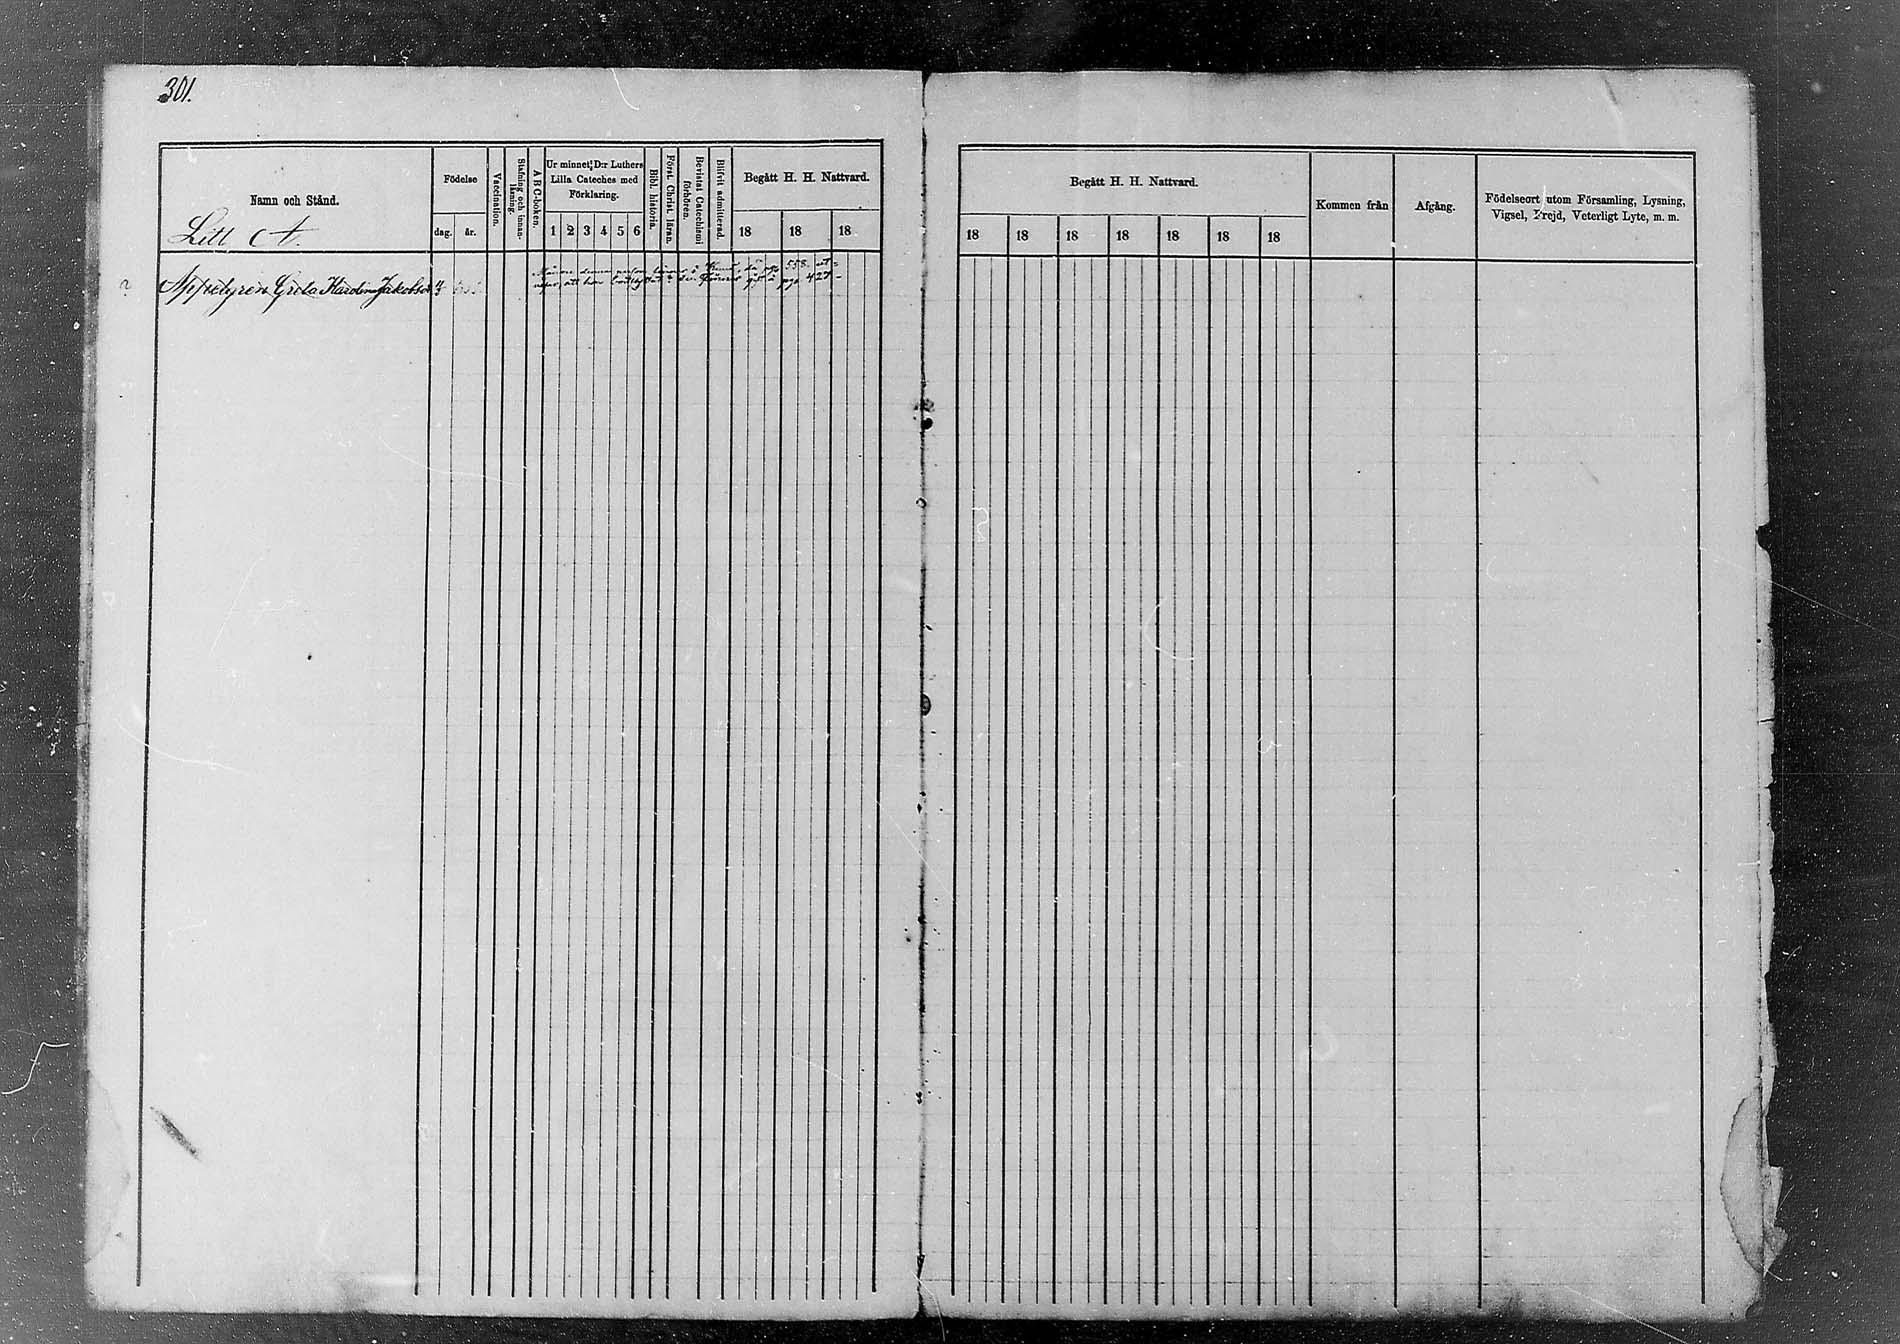 301.
Namn och Stånd.
Litt A.
Födelse
dag.
år.
Vaccination.
Stafning och innan-
läsning.
A B C-boken.
Ur minnet: D:r Luthers
Lilla Cateches med
Förklaring.
1 2 3 4 5 6
Bibl. historia.
Först. Christ. läran.
Bevistat Catechismi
förhören.
Blifvit admitterad.
Begått H. H. Nattvard.
18 18 18
Appelgren Greta Karolina Jakobsd.
denna person pag. 558 ut-
att hon pag. 427
Begått H. H. Nattvard.
18 18 18 18 18 18 18
Kommen från
Afgång.
Födelseort utom Församling, Lysning,
Vigsel, Frejd, Veterligt Lyte, m. m.